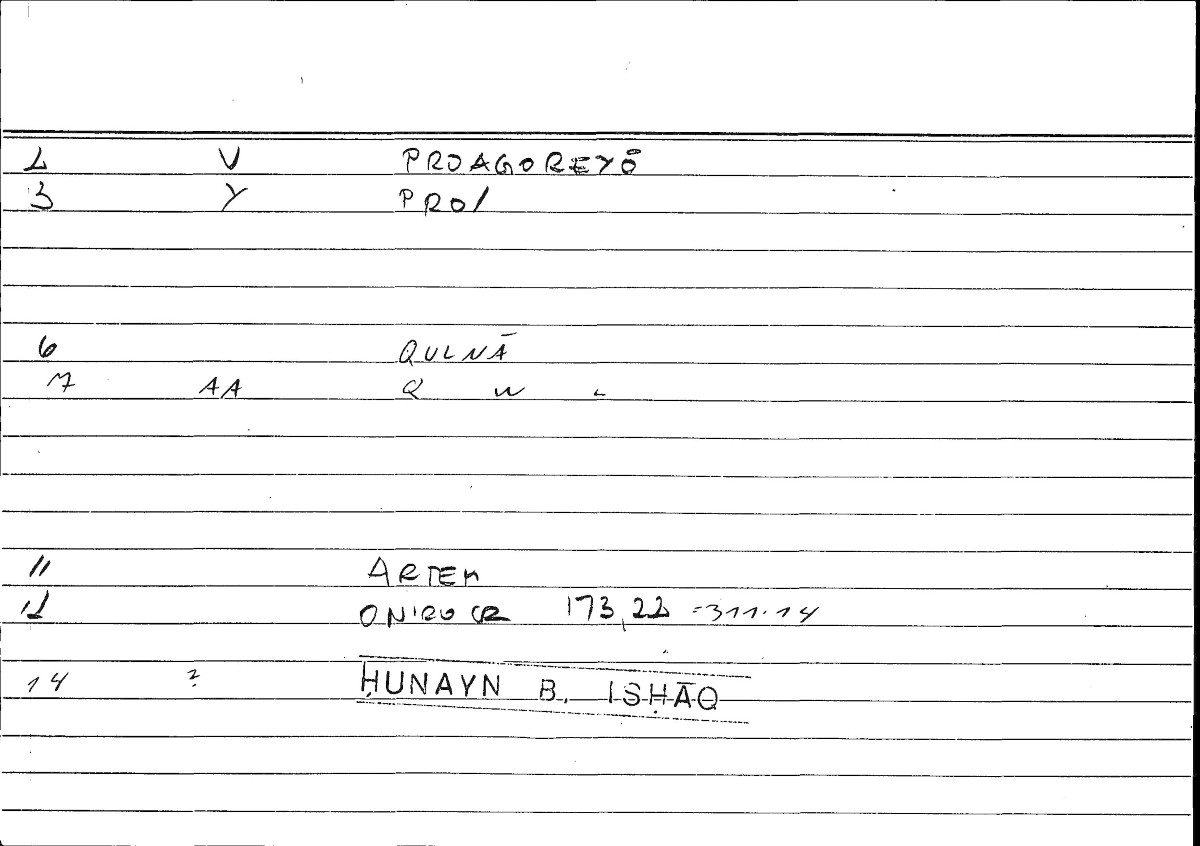 2 V PROAGOREYŌ
3 Y PRO/
6 QULNĀ
7 AA Q W L
11 ARTEM
12 ONIROCR 173,22 =311.14
14 ? ḤUNAYN B. ISḤĀQ